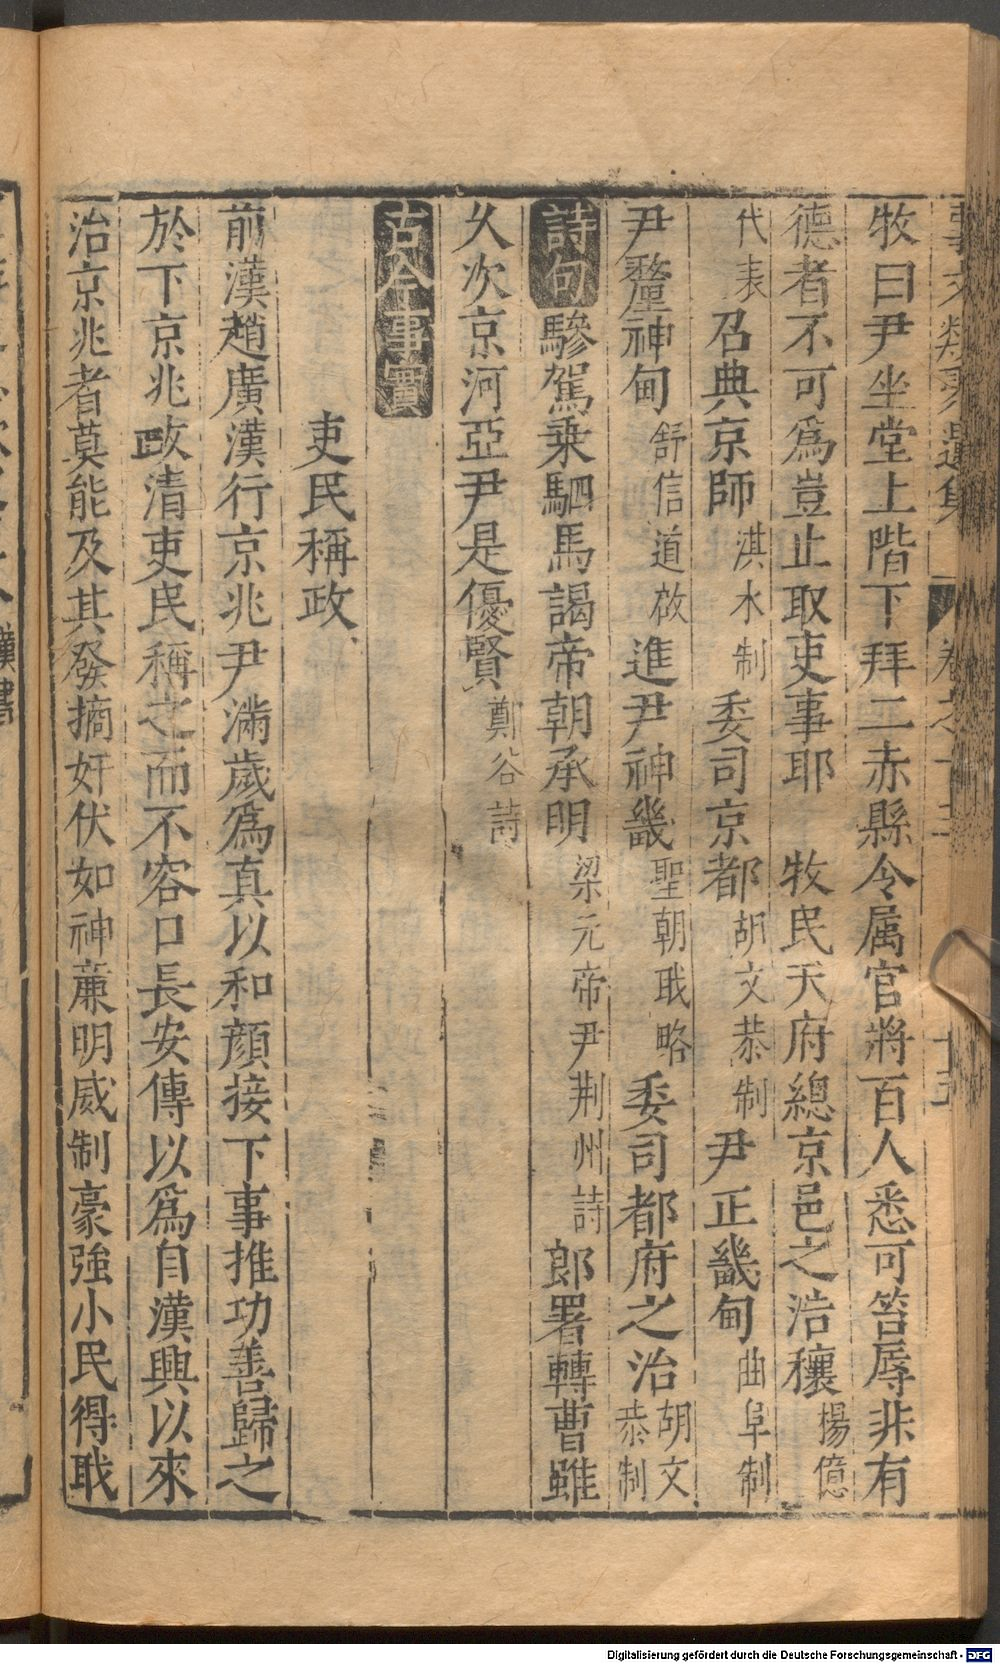 牧曰尹坐堂上階下拜二赤縣令属官將百人悉可笞辱非有
德者不可爲豈止取吏事耶　牧民天府總京邑之浩穰楊億
代表　召典京師淇水制　委司京都胡文恭制　尹正畿甸曲阜制
尹釐神甸舒信道啟　進尹神畿聖朝职略　委司都府之治胡文恭制
詩句驂駕乗駟馬謁帝朝承明梁元帝尹荆州詩　郎署轉曹雖
久次京河亞尹是優賢鄭谷詩
古今事實
吏民稱政
前漢趙廣漢行京兆尹滿歲爲真以和顔接下事推功善歸之
於下京兆政清吏民稱之而不容口長安傳以爲自漢興以來
治京兆者莫能及其發摘奸伏如神廉明威制豪強小民得职
Digitalisierung gefördert durch die Deutsche Forschungsgemeinschaft - DFG